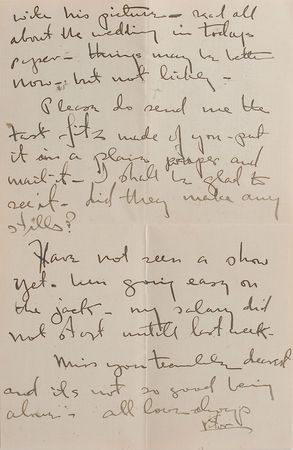 with his picture - read all
about the wedding in todays
paper - things may be better
now - but not likely -
Please do send me the
test - fitz made of you - put
it in a plain paper and
mail it - I shall be glad to
see it - did they make any
stills?
Have not seen a show
yet. been going easy on
the jack - my salary did
not start untill last week -
Miss you terribly dearest
and its not so good being
alone - all love always